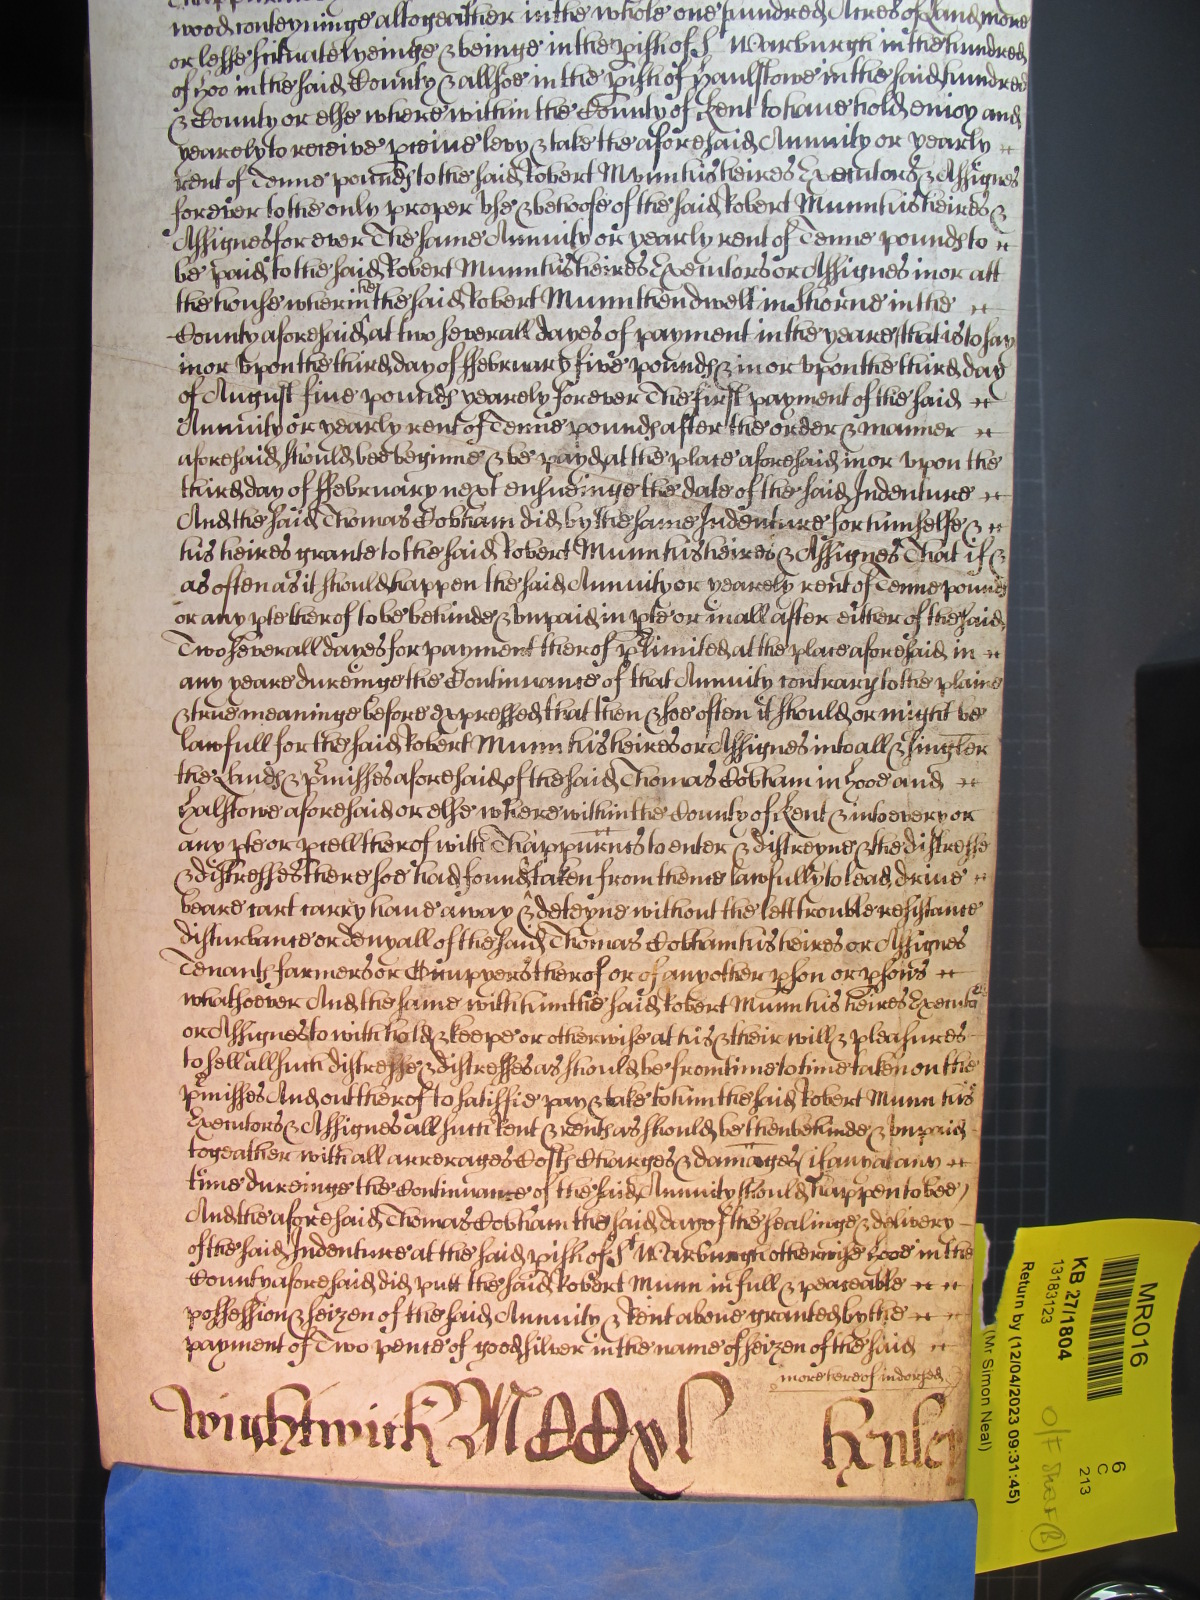 wood conteyninge altogeather in the whole one hundred Acres of Land more
or lesse scituate lyeinge & beinge in the pish of St Warburgh in the hundred
of Hoo in the said County & allsoe in the pish of Haulstowe in the said hundred
& County or else where within the County of Kent to have hold enioy and
yearely to receive pceive levy & take the aforesaid Annuity or yearly
rent of Tenne pounds to the said Robert Munn his heires Executors & Assignes
forever to the only proper vse & behoofe of the said Robert Munn his heires &
Assignes for ever The same Annuity or yearly rent of Tenne pounds to
be paid to the said Robert Munn his heires Executors or Assignes in or att
the house wherin he the said Robert Munn then dwelt in Shorne in the
County aforesaid at two severall dayes of payment in the yeare that is to say
in or vpon the third day of ffebruary five pounds & in or vpon the third day
of August five pounds yearely forever The first payment of the said
Annuity or yearly rent of Tenne pounds after the order & manner
aforesaid should bee beginne & be payd at the place aforesaid in or vpon the
third day of ffebruary next ensueinge the date of the said Indenture
And the said Thomas Cobham did by the same Indenture for himselfe &
his heires grante to the said Robert Munn his heires & Assignes That if &
as often as it should happen the said Annuity or yearely rent of Tenne pounds
or any pte therof to be behinde & vnpaid in pte or in all after either of the said
Two severall dayes for payment therof plimited at the place aforesaid in
any yeare dureinge the Continuance of that Annuity contrary to the plaine
& true meaninge before expressed that then & soe often it should or might be
lawfull for the said Robert Munn his heires or Assignes into all & singler
the Lands & pmisses aforesaid of the said Thomas Cobham in Hooe and
Halstowe aforesaid or else where within the County of Kent & into every or
any pte or pcell therof with Thappurtncs to enter & distreyne & the distresse
& distresses there soe had found & taken from thence lawfully to lead drive
beare cart carry have away & deteyne without the lett trouble resistance
disturbance or denyall of the said Thomas Cobham his heires or Assignes
Tenants farmers or Occuppyers therof or of any other pson or psons
whatsoever And the same with him the said Robert Munn his heires Executors
or Assignes to withhold & keepe or otherwise at his & their will & pleasures
to sell all such distresse & distresses as should be from time to time taken on the
pmisses And out therof to satisfie pay & take to him the said Robert Munn his
Executors & Assignes all such Rent & rents as should be then behinde & vnpaid
togeather with all arrerages Costs Charges & damages (if any at any
time dureinge the Continuance of the said Annuity should happen to bee)
And the aforesaid Thomas Cobham the said day of the sealinge & delivery
of the said Indenture at the said pish of St Warburgh otherwise Hooe in the
County aforesaid did putt the said Robert Munn in full & peaceable
possession & seizen of the said Annuity & Rent above granted by the
payment of Two pence of good silver in the name of seizen of the said
more hereof indorsed
Wightwick MCCxl Henley
MR016
KB 27/1804
13183123
Return by (12/04/2023 09:31:45)
(Mr Simon Neal)
6
C
213